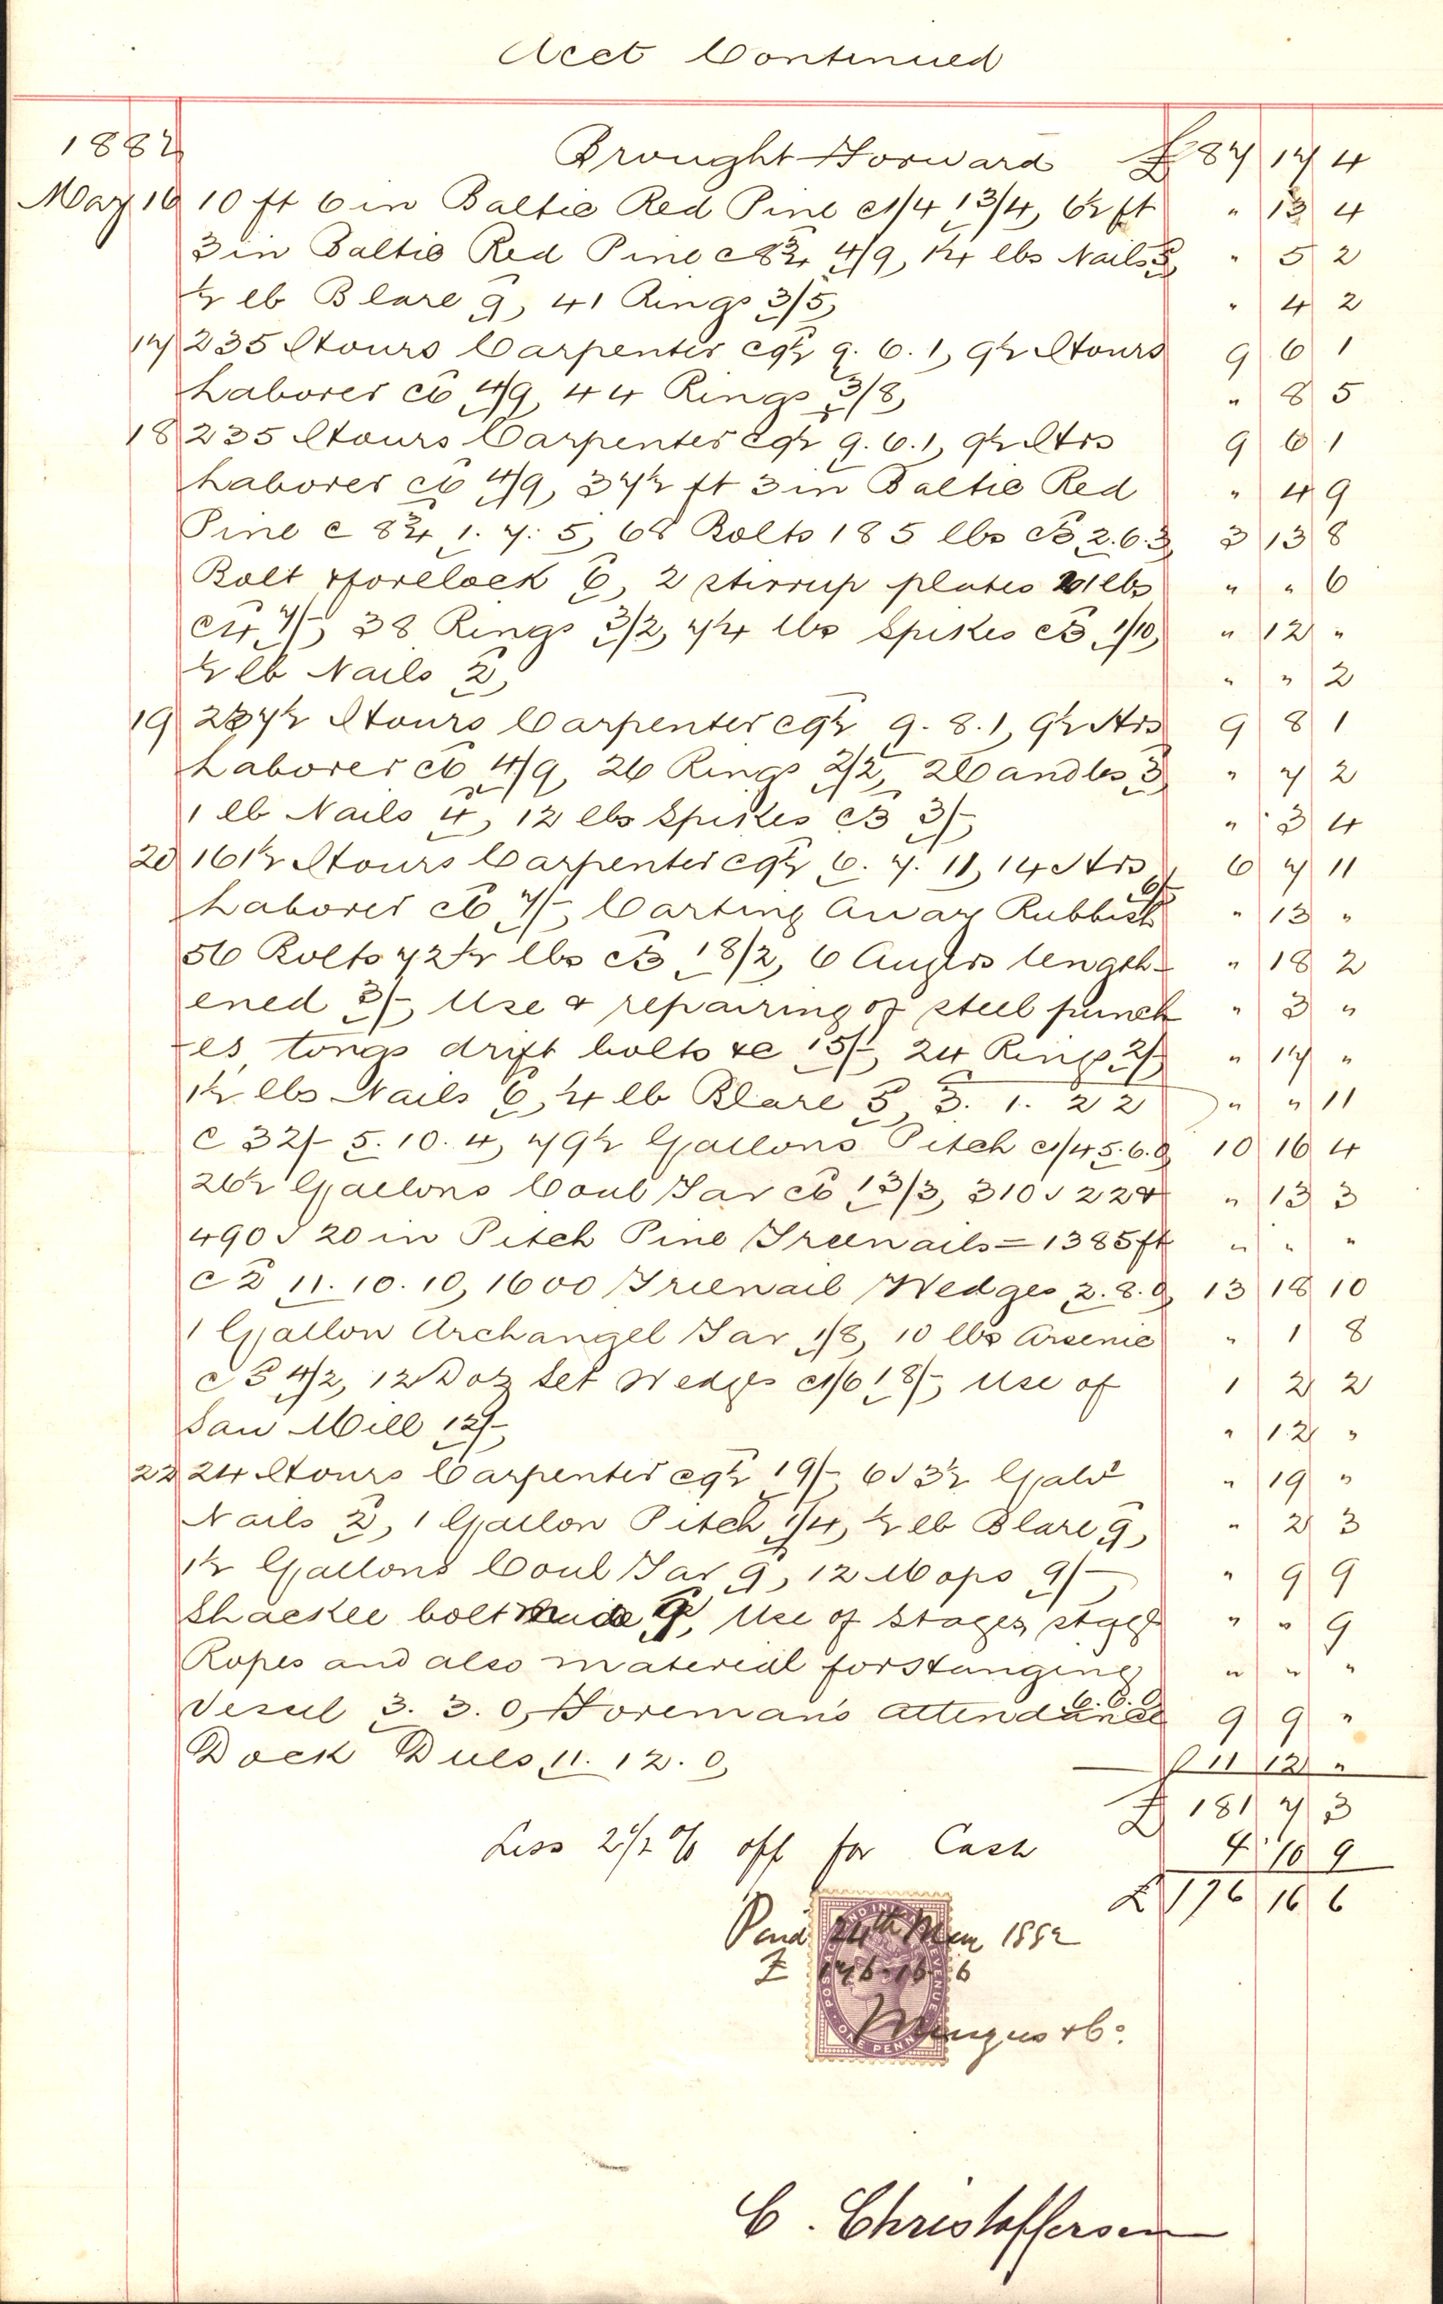 Acct Continued
1882 Brought Forward £ 87 17 4
May 16 10 ft 6 in Baltic Red Pine @ 1/4 13/4, 6½ ft " 13 4
3 in Baltic Red Pine @ 8¾ 4/9, 1¼ lbs Nails 5, " 5 2
½ lb Blare 9, 41 Rings 3/5, " 4 2
17 235 Hours Carpenter @ 9½ 9.6.1, 9½ Hours 9 6 1
Laborer @ 6 4/9, 44 Rings 3/8, " 8 5
18 235 Hours Carpenter @ 9½ 9.6.1, 9½ Hrs 9 6 1
Laborer @ 6 4/9, 37½ ft 3 in Baltic Red " 4 9
Pine @ 8¾ 1.7.5, 68 Bolts 185 lbs @ 3 2.6.3, 3 13 8
Bolt & forelock 6, 2 stirrup plates 21 lbs " " 6
@ 4 7/-, 38 Rings 3/2, 7¼ lbs Spikes @ 3 1/10, " 12 "
½ lb Nails 2, " " 2
19 237½ Hours Carpenter @ 9½ 9.8.1, 9½ Hrs 9 8 1
Laborer @ 6 4/9, 26 Rings 2/2, 2 Candles 3, " 7 2
1 lb Nails 4, 12 lbs Spikes @ 3 3/-, " 3 4
20 161½ Hours Carpenter @ 9½ 6.7.11, 14 Hrs 6 7 11
Laborer @ 6 7/-, Carting Away Rubbish 6/- " 13 "
56 Bolts 72½ lbs @ 3 18/2, 6 Augers length- " 18 2
ened 3/-, Use & repairing of steel punch " 3 "
-es, tongs drift bolts &c 15/-, 24 Rings 2/-, " 17 "
1½ lbs Nails 6, ¼ lb Blare 5, 3. 1. 22 " " 11
@ 32/- 5.10.4, 79½ Gallons Pitch @ 1/4 5.6.0, 10 16 4
26½ Gallons Coal Tar @ 6 13/3, 310 / 22 & " 13 3
490 / 20 in Pitch Pine Treenails = 1385 ft " " "
@ 2 11.10.10, 1600 Treenail Wedges 2.8.0, 13 18 10
1 Gallon Archangel Tar 1/8, 10 lbs Arsenic " 1 8
@ 5 4/2, 12 Doz Set Wedges @ 1/6 18/-, Use of 1 2 2
Saw Mill 12/-, " 12 "
22 24 Hours Carpenter @ 9½ 19/-, 6 / 3½ Galvd " 19 "
Nails 2, 1 Gallon Pitch 1/4, ½ lb Blare 9, " 2 3
1½ Gallons Coal Tar 9, 12 Mops 9/-, " 9 9
Shackle bolt made 9, Use of Stages, stage " " 9
Ropes and also material for Hanging " " "
Vessel 3.3.0, Foreman's attendance 6.6.0 9 9 "
Dock Dues 11.12.0, 11 12 "
£ 181 7 3
Less 2½ % off for Cash 4 10 9
£ 176 16 6
Paid 24th May 1882
£ 176.16.6
Mingus & Co.
POSTAGE AND INLAND REVENUE
ONE PENNY
C. Christoffersen